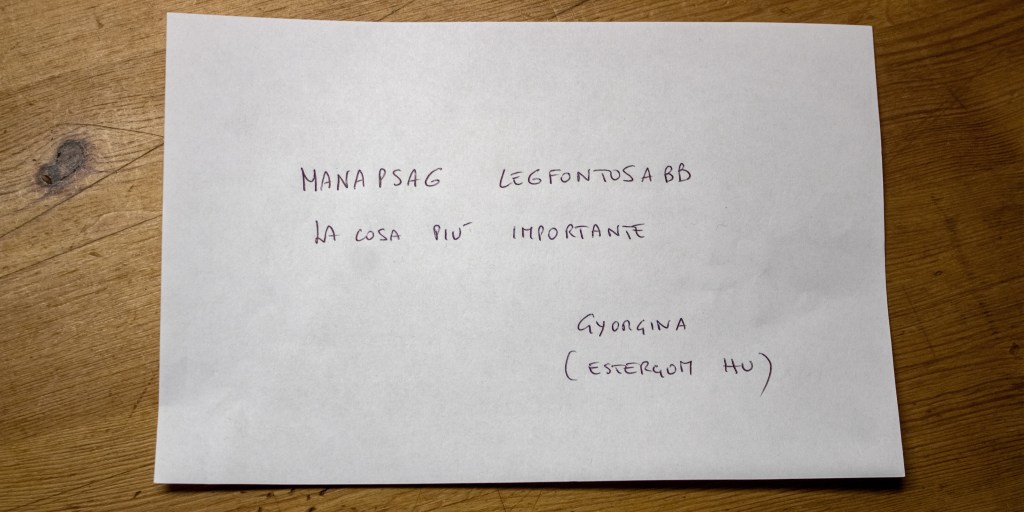 MANAPSAG LEGFONTOSABB
LA COSA PIÚ IMPORTANTE
GYORGINA
(ESTERGOM HU)